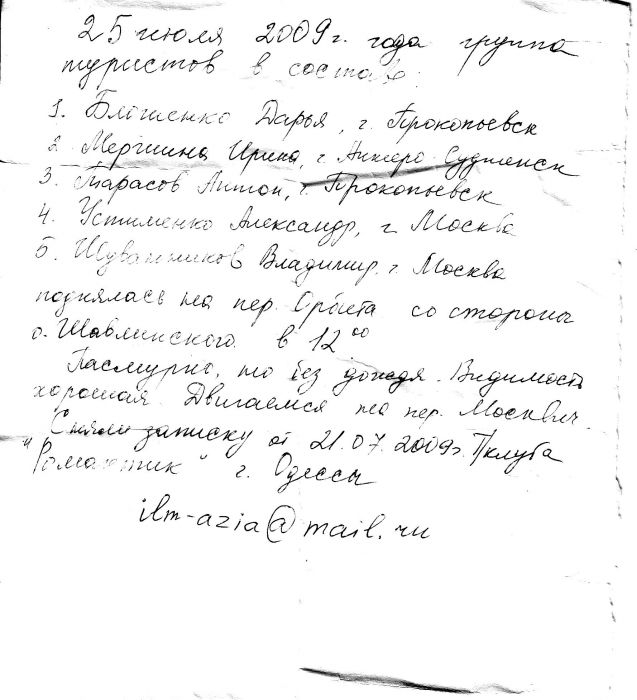 25 июля 2009 г. года группа
туристов в составе:
1. Блошенко Дарья, г. Прокопьевск
2. Мершина Ирина, г. Анжеро Судженск
3. Тарасов Антон, г. Прокопьевск
4. Устименко Александр, г. Москва
5. Шуванников Владимир, г. Москва
поднялась на пер. Орбита со стороны
о. Шавлинского в 12⁰⁰
Пасмурно, но без дождя. Видимость
хорошая. Двигаемся на пер. Москвич.
Сняли записку от 21.07.2009г. Т/клуба
"Романтик" г. Одессы
ilm-azia@mail.ru